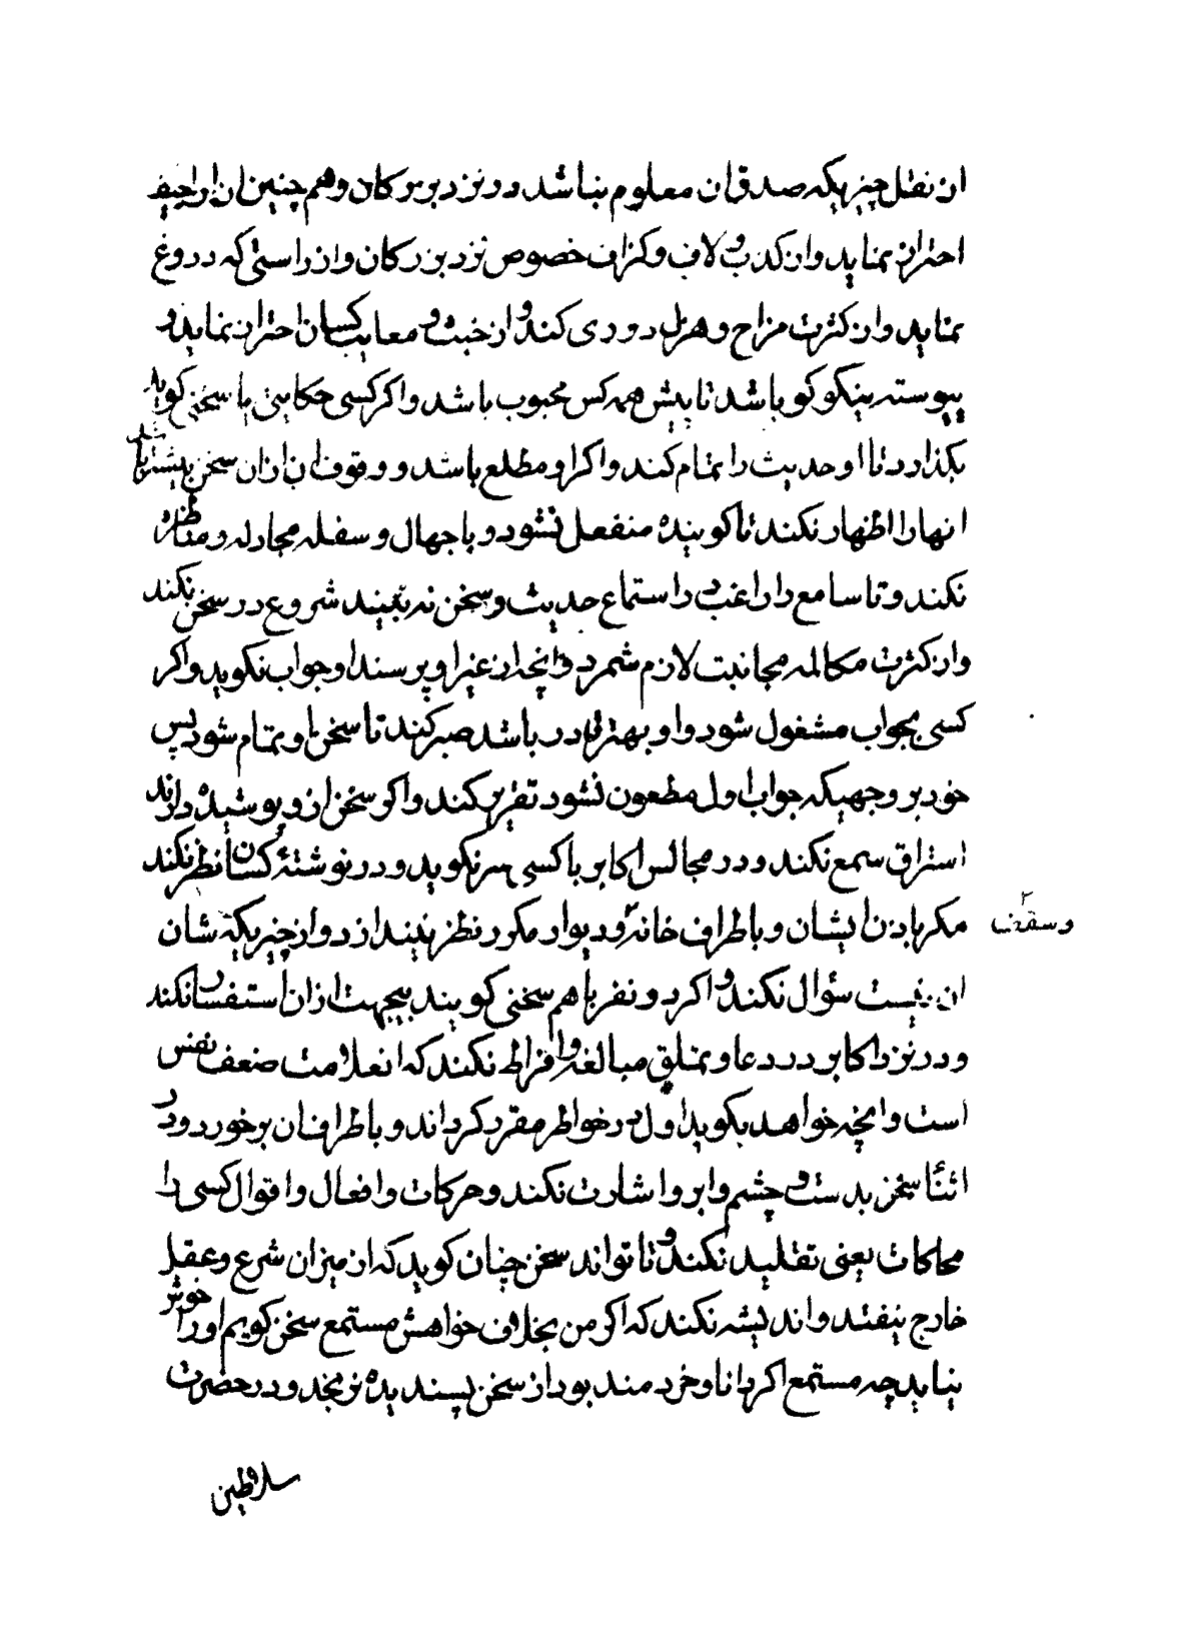 از نقل چیزیکه صدق ان معلوم نباشد در نزد بزرکان و هم چنین از اراجیف
احتراز نماید و از کذب و لاف و کزاف خصوص نزد بزرکان و از راستی که دروغ
نماید و از کثرت مزاح و هزل دوری کند و از خبث و معایب کسان احتراز نماید و
پیوسته نیکو کو باشد تا پیش همه کس محبوب باشد و اکر کسی حکایتی یا سخنی کوید
بکذارد تا او حدیث را تمام کند و اکر او مطلع باشد و وقوف او از ان سخن بیشتر باشد
انها را اظهار نکند تا کوینده منفعل نشود و با جهال و سفله مجادله و مناظره
نکند و تا سامع را راغب در استماع حدیث و سخن نه بیند شروع در سخن نکند
و از کثرت مکالمه مجانبت لازم شمرد و انچه از غیر او پرسند او جواب نکوید و اکر
کسی بجواب مشغول شود و او بهتر قادر باشد صبر کند تا سخن او تمام شود پس
خود بر وجهیکه جواب اول مطعون نشود تقریر کند و اکر سخن از و پوشیده دارند
استراق سمع نکند و در مجالس اکابر با کسی سر نکوید و در نوشتهٔ کسان نظر نکند
مکر باذن ایشان و باطراف خانه و دیوار مکرر نظر نیندازد و از چیزیکه شان
وسقف
ان نیست سؤال نکند و اکر دو نفر با هم سخنی کویند بیجهت از ان استفسار نکند
و در نزد اکابر در دعا و تملق مبالغه و افراط نکند که از علامت ضعف نفس
است و انچه خواهد بکوید اول در خواطر مقرر کرداند و باطراف ان برخورد و در
اثنا سخن بدست و چشم و ابرو اشارت نکند و حرکات و افعال و اقوال کسی را
محاکات یعنی تقلید نکند و تا تواند سخن چنان کوید که از میزان شرع و عقل
خارج نیفتد و اندیشه نکند که اکر من بخلاف خواهش مستمع سخن کویم او را خوش
نیاید چه مستمع اکر دانا و خردمند بود از سخن پسندیده نرنجد و در حضرت
سلاطین